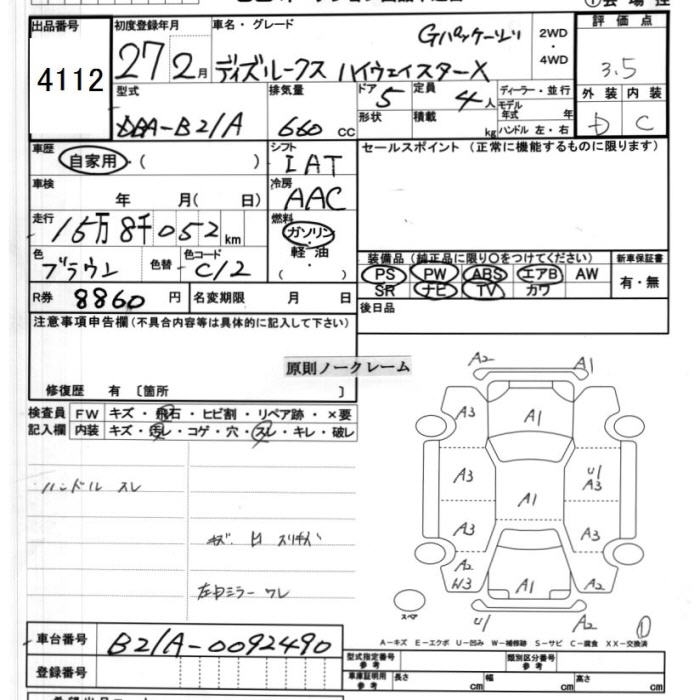 評価点
出品番号 初度登録年月 車名・グレード Gパッケージ 2WD・4WD 3.5
4112 27 2月 ディズルークス ハイウェイスターX
外装 内装
D C
型式 排気量 ドア 5 定員 4人 ディーラー・並行
BA-B21A 660cc 形状 積載 kg モデル年式 年
ハンドル 左・右
車歴 シフト セールスポイント (正常に機能するものに限ります)
自家用・( ) IAT
車検 冷房
年 月( 日) AAC
走行 燃料
16万8千052km ガソリン・軽油
色 ブラウン 色替 色コード C12 ( )
装備品 (純正品に限り○をつけてください) 新車保証書
PS PW ABS エアB AW 有・無
SR ナビ TV カワ
R券 8860円 名変期限 月 日 後日品
注意事項申告欄(不具合内容等は具体的に記入して下さい)
原則ノークレーム
修復歴 有 〔箇所 〕
検査員 FW キズ・飛石・ヒビ割・リペア跡・×要
記入欄 内装 キズ・汚レ・コゲ・穴・スレ・キレ・破レ
ハンドル スレ
キズ 凹 スリキズ
左ドアミラー ワレ
A2 A1
A3 A1
A3 A1 U1 A3
A3 A3
A2 W3 A1 A2
スペア U1 A2 ①
A-キズ E-エクボ U-凹み W-補修跡 S-サビ C-腐食 XX-交換済
車台番号 B21A-0092490
型式指定番号 参考 類別区分番号 参考
登録番号 車庫証明用 参考 長さ cm 幅 cm 高さ cm